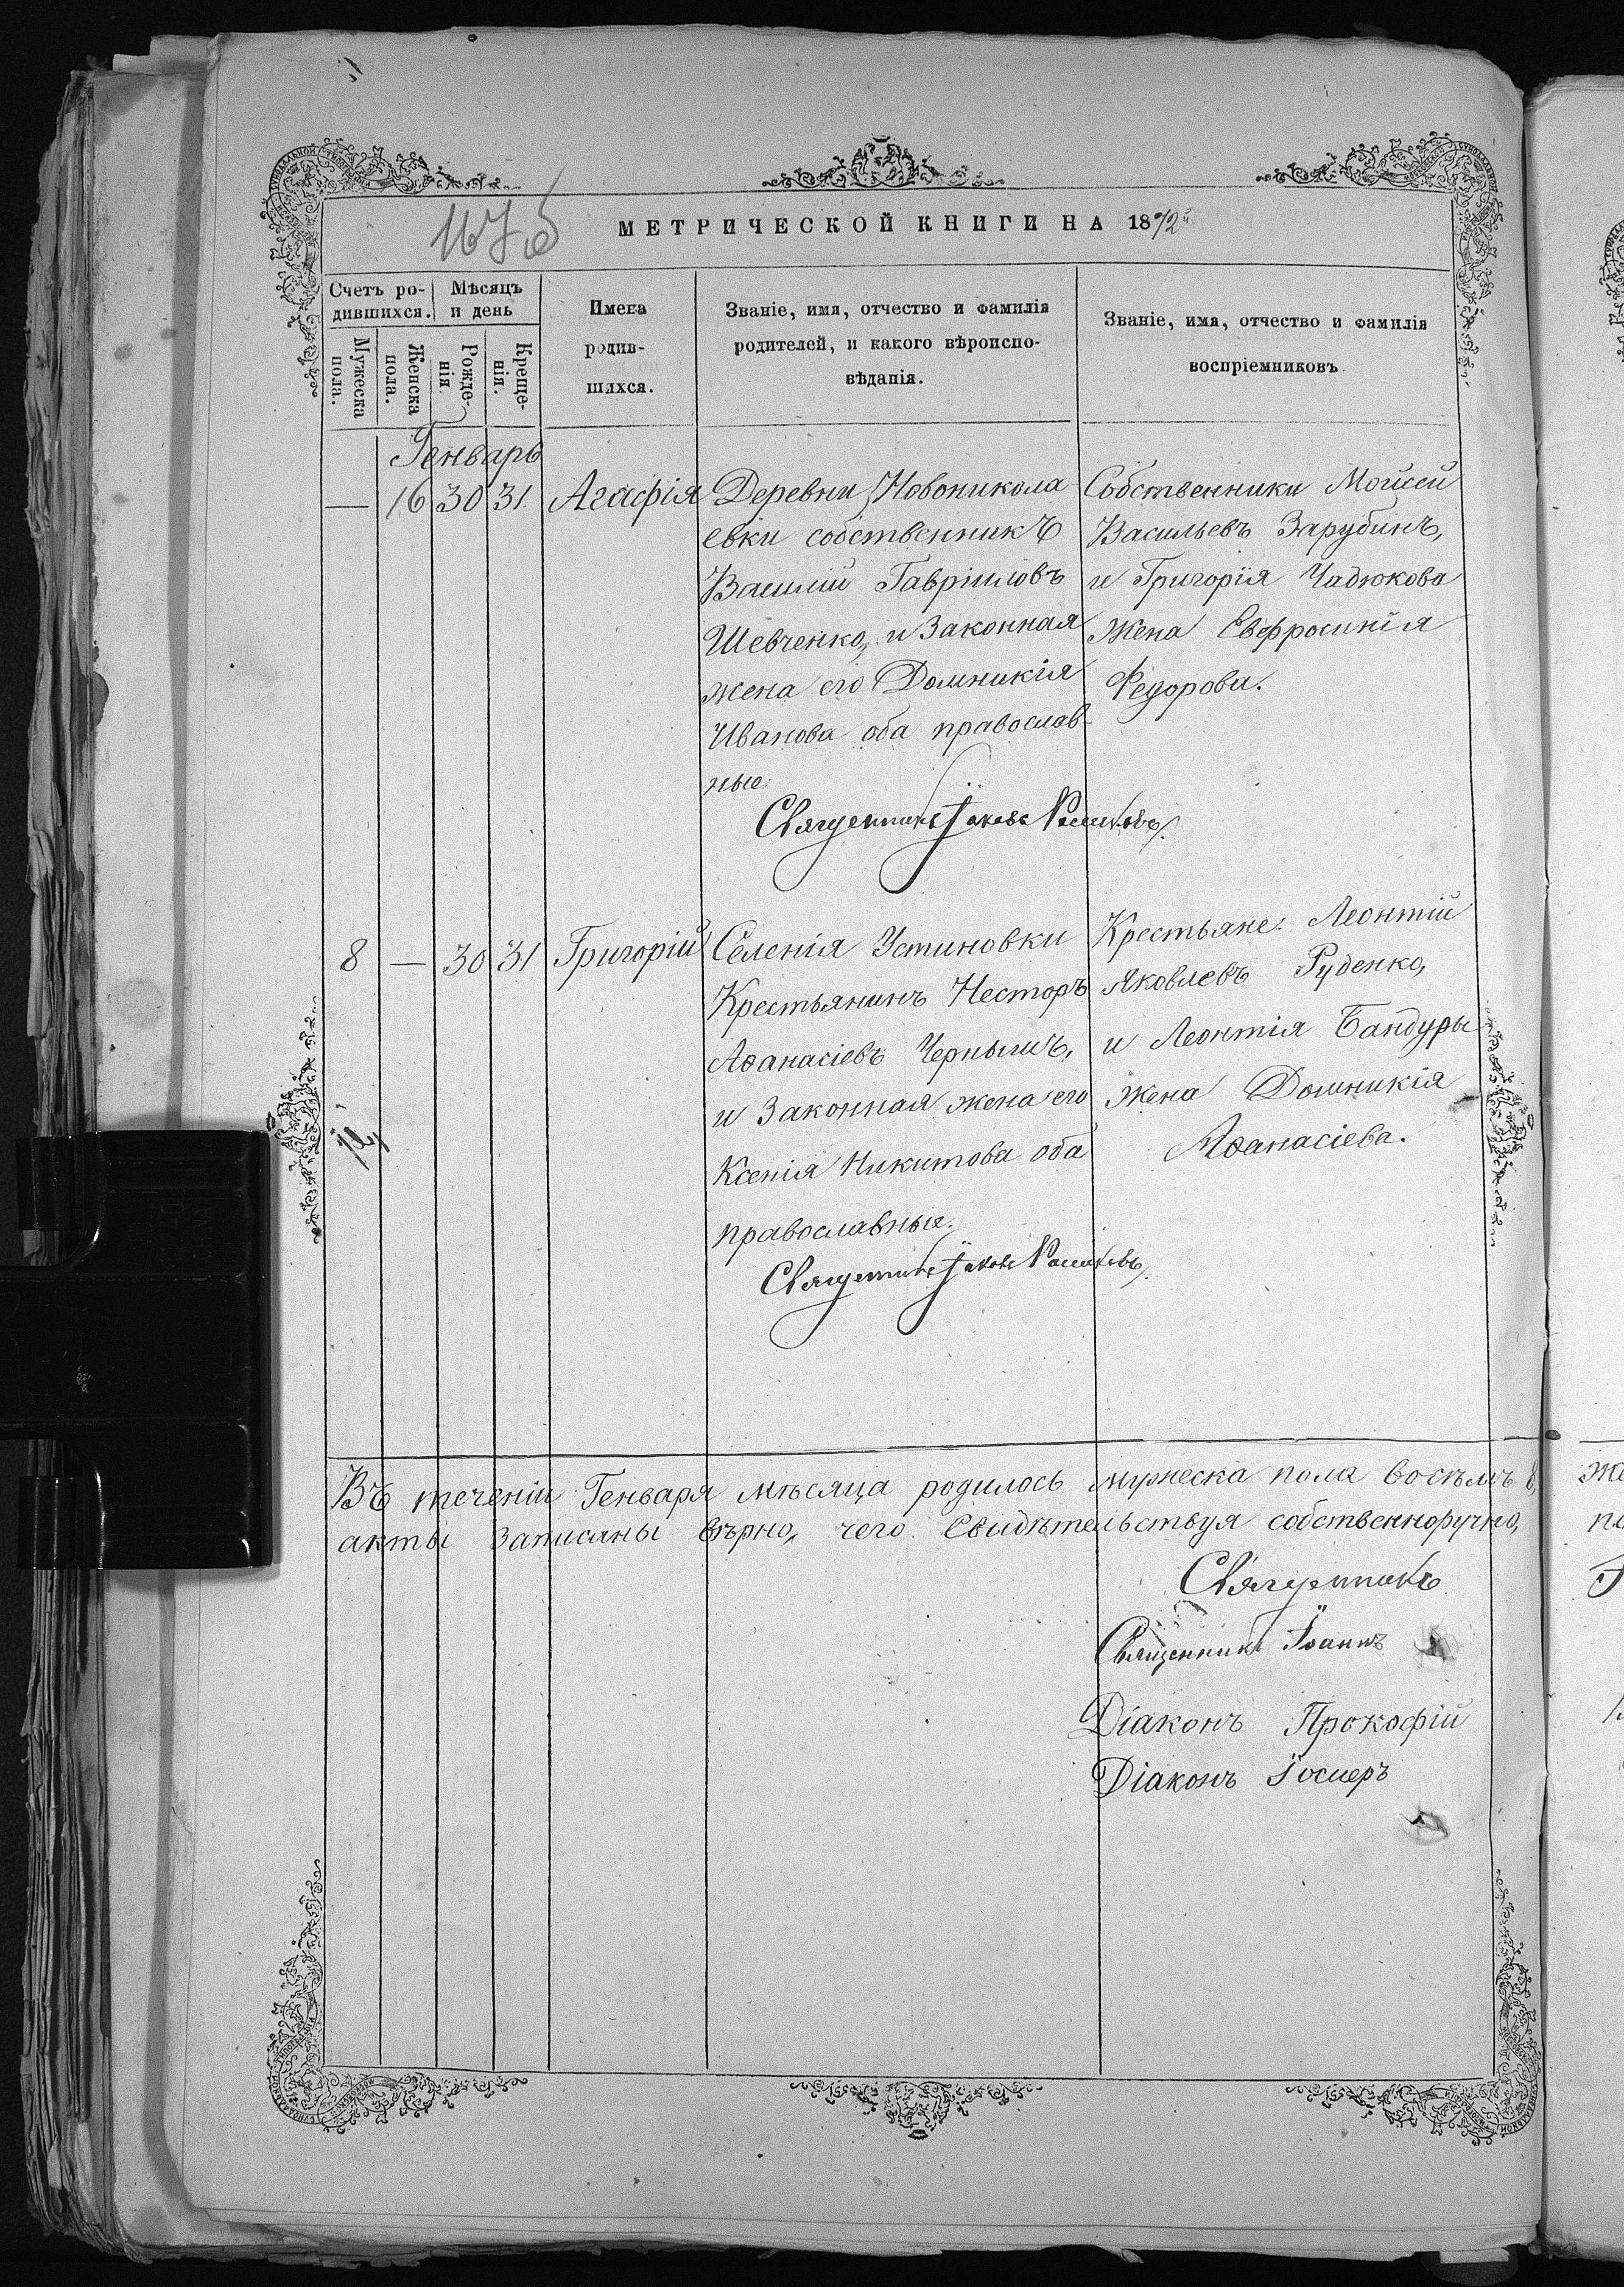 МЕТРИЧЕСКОЙ КНИГИ НА 1892
Счетъ ро-
дившихся.
Мѣсяцъ
и день
Мужеска
пола.
Женска
пола.
Рожде-
нія.
Креще-
нія.
Имена
родив-
шихся.
Званіе, имя, отчество и фамилія
родителей, и какого вѣроиспо-
вѣданія.
Званіе, имя, отчество и фамилія
воспріемниковъ
Генварь
— 16 30 31 Агафія
Деревни Новоникола-
евки собственникъ
Василій Гавріиловъ
Шевченко, и Законная
жена его Домникія
Иванова оба православ-
ные.
Священникъ Іаковъ
Собственники Мойсей
Васильевъ Зарубинъ,
и Григорія Чадюкова
жена Евфросинія
Федорова.
8 — 30 31 Григорій
Селенія Устиновки
Крестьянинъ Несторъ
Аѳанасіевъ Чернышъ,
и Законная жена его
Ксенія Никитова оба
православные.
Священникъ Іаковъ
Крестьяне: Леонтій
Яковлевъ Руденко,
и Леонтія Бандуры
жена Домникія
Аѳанасіева.
Въ теченіи Генваря мѣсяца родилось мужеска пола восѣмъ 8,
акты записаны вѣрно, чего свидѣтельствуя собственноручно,
Священникъ
Священникъ Іоаннъ
Діаконъ Прокофій
Діаконъ